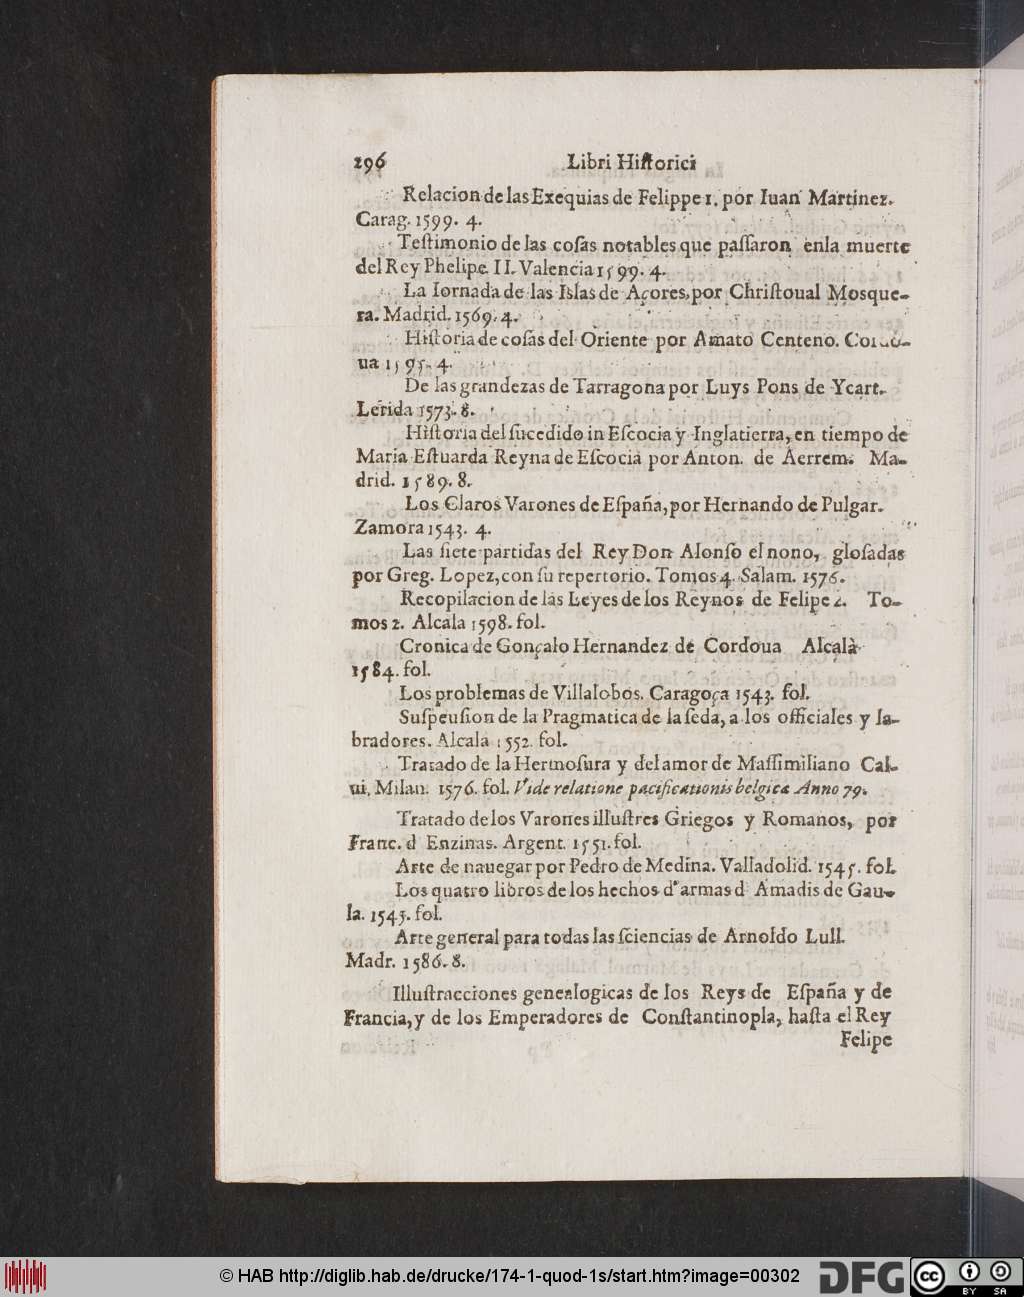 296 Libri Hiſtorici
Relacion de las Exequias de Felippe 1. por Iuan Martinez.
Carag. 1599. 4.
Teſtimonio de las coſas notables que paſſaron enla muerte
del Rey Phelipe II. Valencia 1599. 4.
La Iornada de las Islas de Açores, por Chriſtoual Mosque-
ra. Madrid. 1569. 4.
Hiſtoria de coſas del Oriente por Amato Centeno. Cordo-
ua 1595. 4.
De las grandezas de Tarragona por Luys Pons de Ycart.
Lerida 1573. 8.
Hiſtoria del ſucedido in Eſcocia y Inglatierra, en tiempo de
Maria Eſtuarda Reyna de Eſcocia por Anton. de Aerrem. Ma-
drid. 1589. 8.
Los Claros Varones de Eſpaña, por Hernando de Pulgar.
Zamora 1543. 4.
Las ſiete partidas del Rey Don Alonſo el nono, gloſadas
por Greg. Lopez, con ſu repertorio. Tomos 4. Salam. 1576.
Recopilacion de las Leyes de los Reynos de Felipe 2. To-
mos 2. Alcala 1598. fol.
Cronica de Gonçalo Hernandez de Cordoua Alcalà
1584. fol.
Los problemas de Villalobos. Caragoça 1543. fol.
Suſpeuſion de la Pragmatica de la ſeda, a los officiales y la-
bradores. Alcala 1552. fol.
Tratado de la Hermoſura y del amor de Maſſimiliano Cal-
ui, Milan. 1576. fol. Vide relatione pacificationis belgicæ Anno 79.
Tratado de los Varones illuſtres Griegos y Romanos, por
Franc. d Enzinas. Argent. 1551. fol.
Arte de nauegar por Pedro de Medina. Valladolid. 1545. fol.
Los quatro libros de los hechos d'armas d Amadis de Gau-
la. 1545. fol.
Arte general para todas las ſciencias de Arnoldo Lull.
Madr. 1586. 8.
Illuſtracciones genealogicas de los Reys de Eſpaña y de
Francia, y de los Emperadores de Conſtantinopla, haſta el Rey
Felipe
© HAB http://diglib.hab.de/drucke/174-1-quod-1s/start.htm?image=00302 DFG CC BY SA